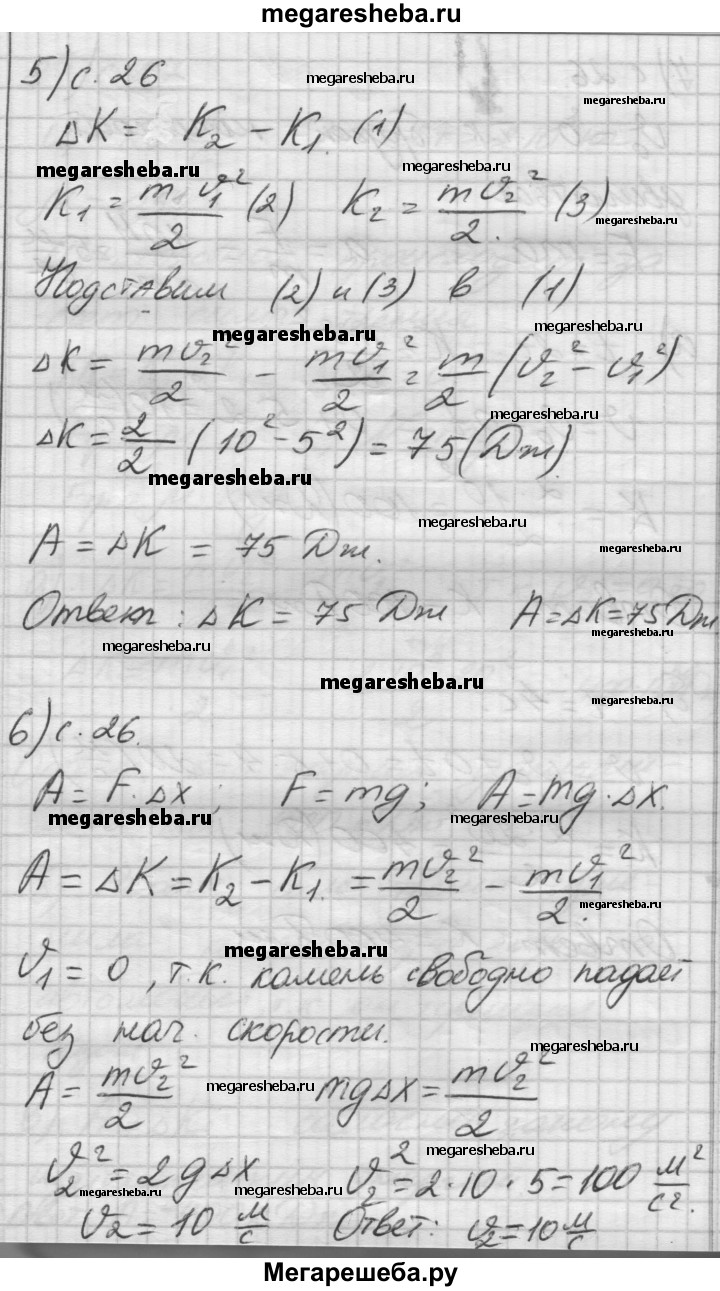 megaresheba.ru
5) с. 26
megaresheba.ru
megaresheba.ru
ΔK = K₂ - K₁. (1)
megaresheba.ru
megaresheba.ru
K₁ = mϑ₁²/2 (2) K₂ = mϑ₂²/2. (3)
megaresheba.ru
Подставим (2) и (3) в (1)
megaresheba.ru
megaresheba.ru
ΔK = mϑ₂²/2 - mϑ₁²/2 = m/2 (ϑ₂² - ϑ₁²)
megaresheba.ru
ΔK = 2/2 (10² - 5²) = 75 (Дж).
megaresheba.ru
megaresheba.ru
A = ΔK = 75 Дж.
megaresheba.ru
Ответ: ΔK = 75 Дж A = ΔK = 75 Дж
megaresheba.ru
megaresheba.ru
megaresheba.ru
6) с. 26.
A = F·Δx; F = mg; A = mg·Δx.
megaresheba.ru
megaresheba.ru
A = ΔK = K₂ - K₁. = mϑ₂²/2 - mϑ₁²/2.
megaresheba.ru
megaresheba.ru
ϑ₁ = 0, т.к. камень свободно падает
без нач. скорости.
megaresheba.ru
A = mϑ₂²/2 mgΔx = mϑ₂²/2
megaresheba.ru
megaresheba.ru
ϑ₂² = 2gΔx ϑ₂² = 2·10·5 = 100 м²/с².
megaresheba.ru
megaresheba.ru
megaresheba.ru
ϑ₂ = 10 м/с Ответ: ϑ₂ = 10 м/с
Мегарешеба.ру